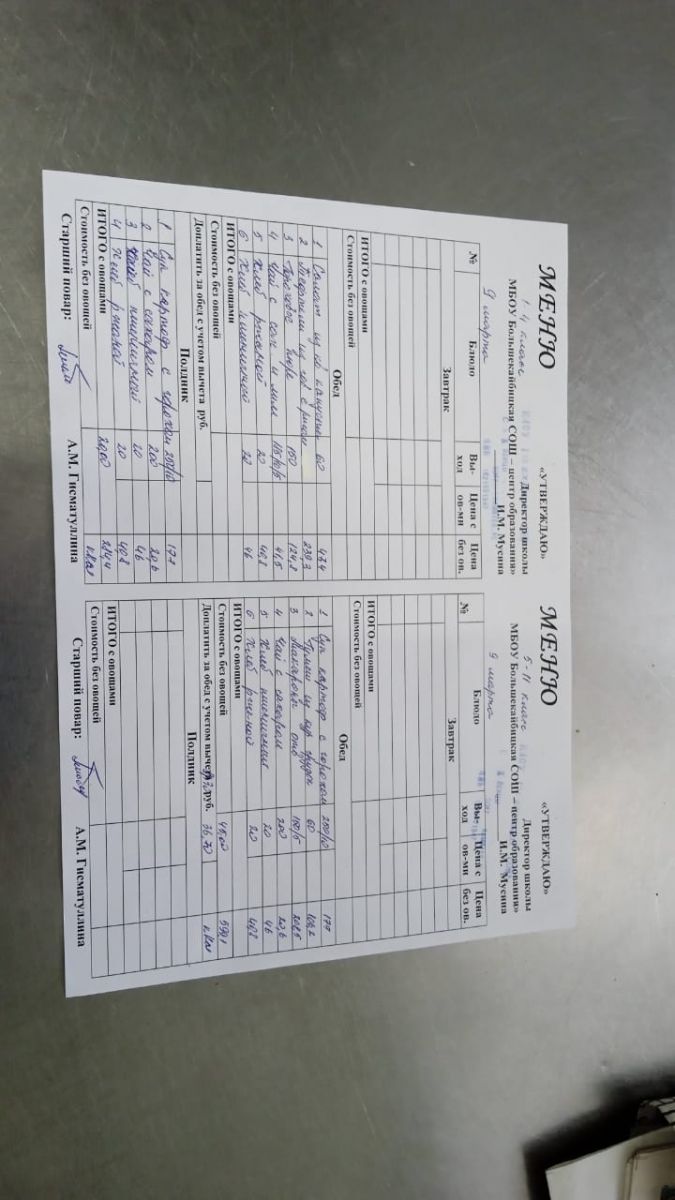 МЕНЮ
«УТВЕРЖДАЮ»
1-4 класс
Директор школы
МБОУ Большекайбицкая СОШ – центр образования»
И.М. Мусина
9 марта
№ Блюдо Вы-ход Цена с ов-ми Цена без ов.
Завтрак
ИТОГО с овощами
Стоимость без овощей
Обед
1 Салат из капусты 60 47.4
2 из с рисом
3 Гороховое пюре 150 124.8
4 Чай с сах и лим
5 Хлеб ржаной 20 40.8
6 Хлеб пшеничный 20 46
ИТОГО с овощами
Стоимость без овощей
Доплатить за обед с учетом вычета руб.
Полдник
1 Суп картоф с горохом 200/10 177
2 Чай с сахаром 200 20,6
3 Хлеб пшеничный 20 46
4 Хлеб ржаной 20 40.8
ИТОГО с овощами 20,00 284.4
Стоимость без овощей ккал
Старший повар: А.М. Гисматуллина
МЕНЮ
«УТВЕРЖДАЮ»
5-11 класс
Директор школы
МБОУ Большекайбицкая СОШ – центр образования»
И.М. Мусина
9 марта
№ Блюдо Вы-ход Цена с ов-ми Цена без ов.
Завтрак
ИТОГО с овощами
Стоимость без овощей
Обед
1 Суп картоф с горохом 200/10 177
2 из кур грудки 60 106.2
3 Макароны отв 150/5
4 Чай с сахаром 200 20,6
5 Хлеб пшеничный 20 46
6 Хлеб ржаной 20 40,8
ИТОГО с овощами
Стоимость без овощей 45,00
Доплатить за обед с учетом вычета руб. 36,70 ккал
Полдник
ИТОГО с овощами
Стоимость без овощей
Старший повар: А.М. Гисматуллина